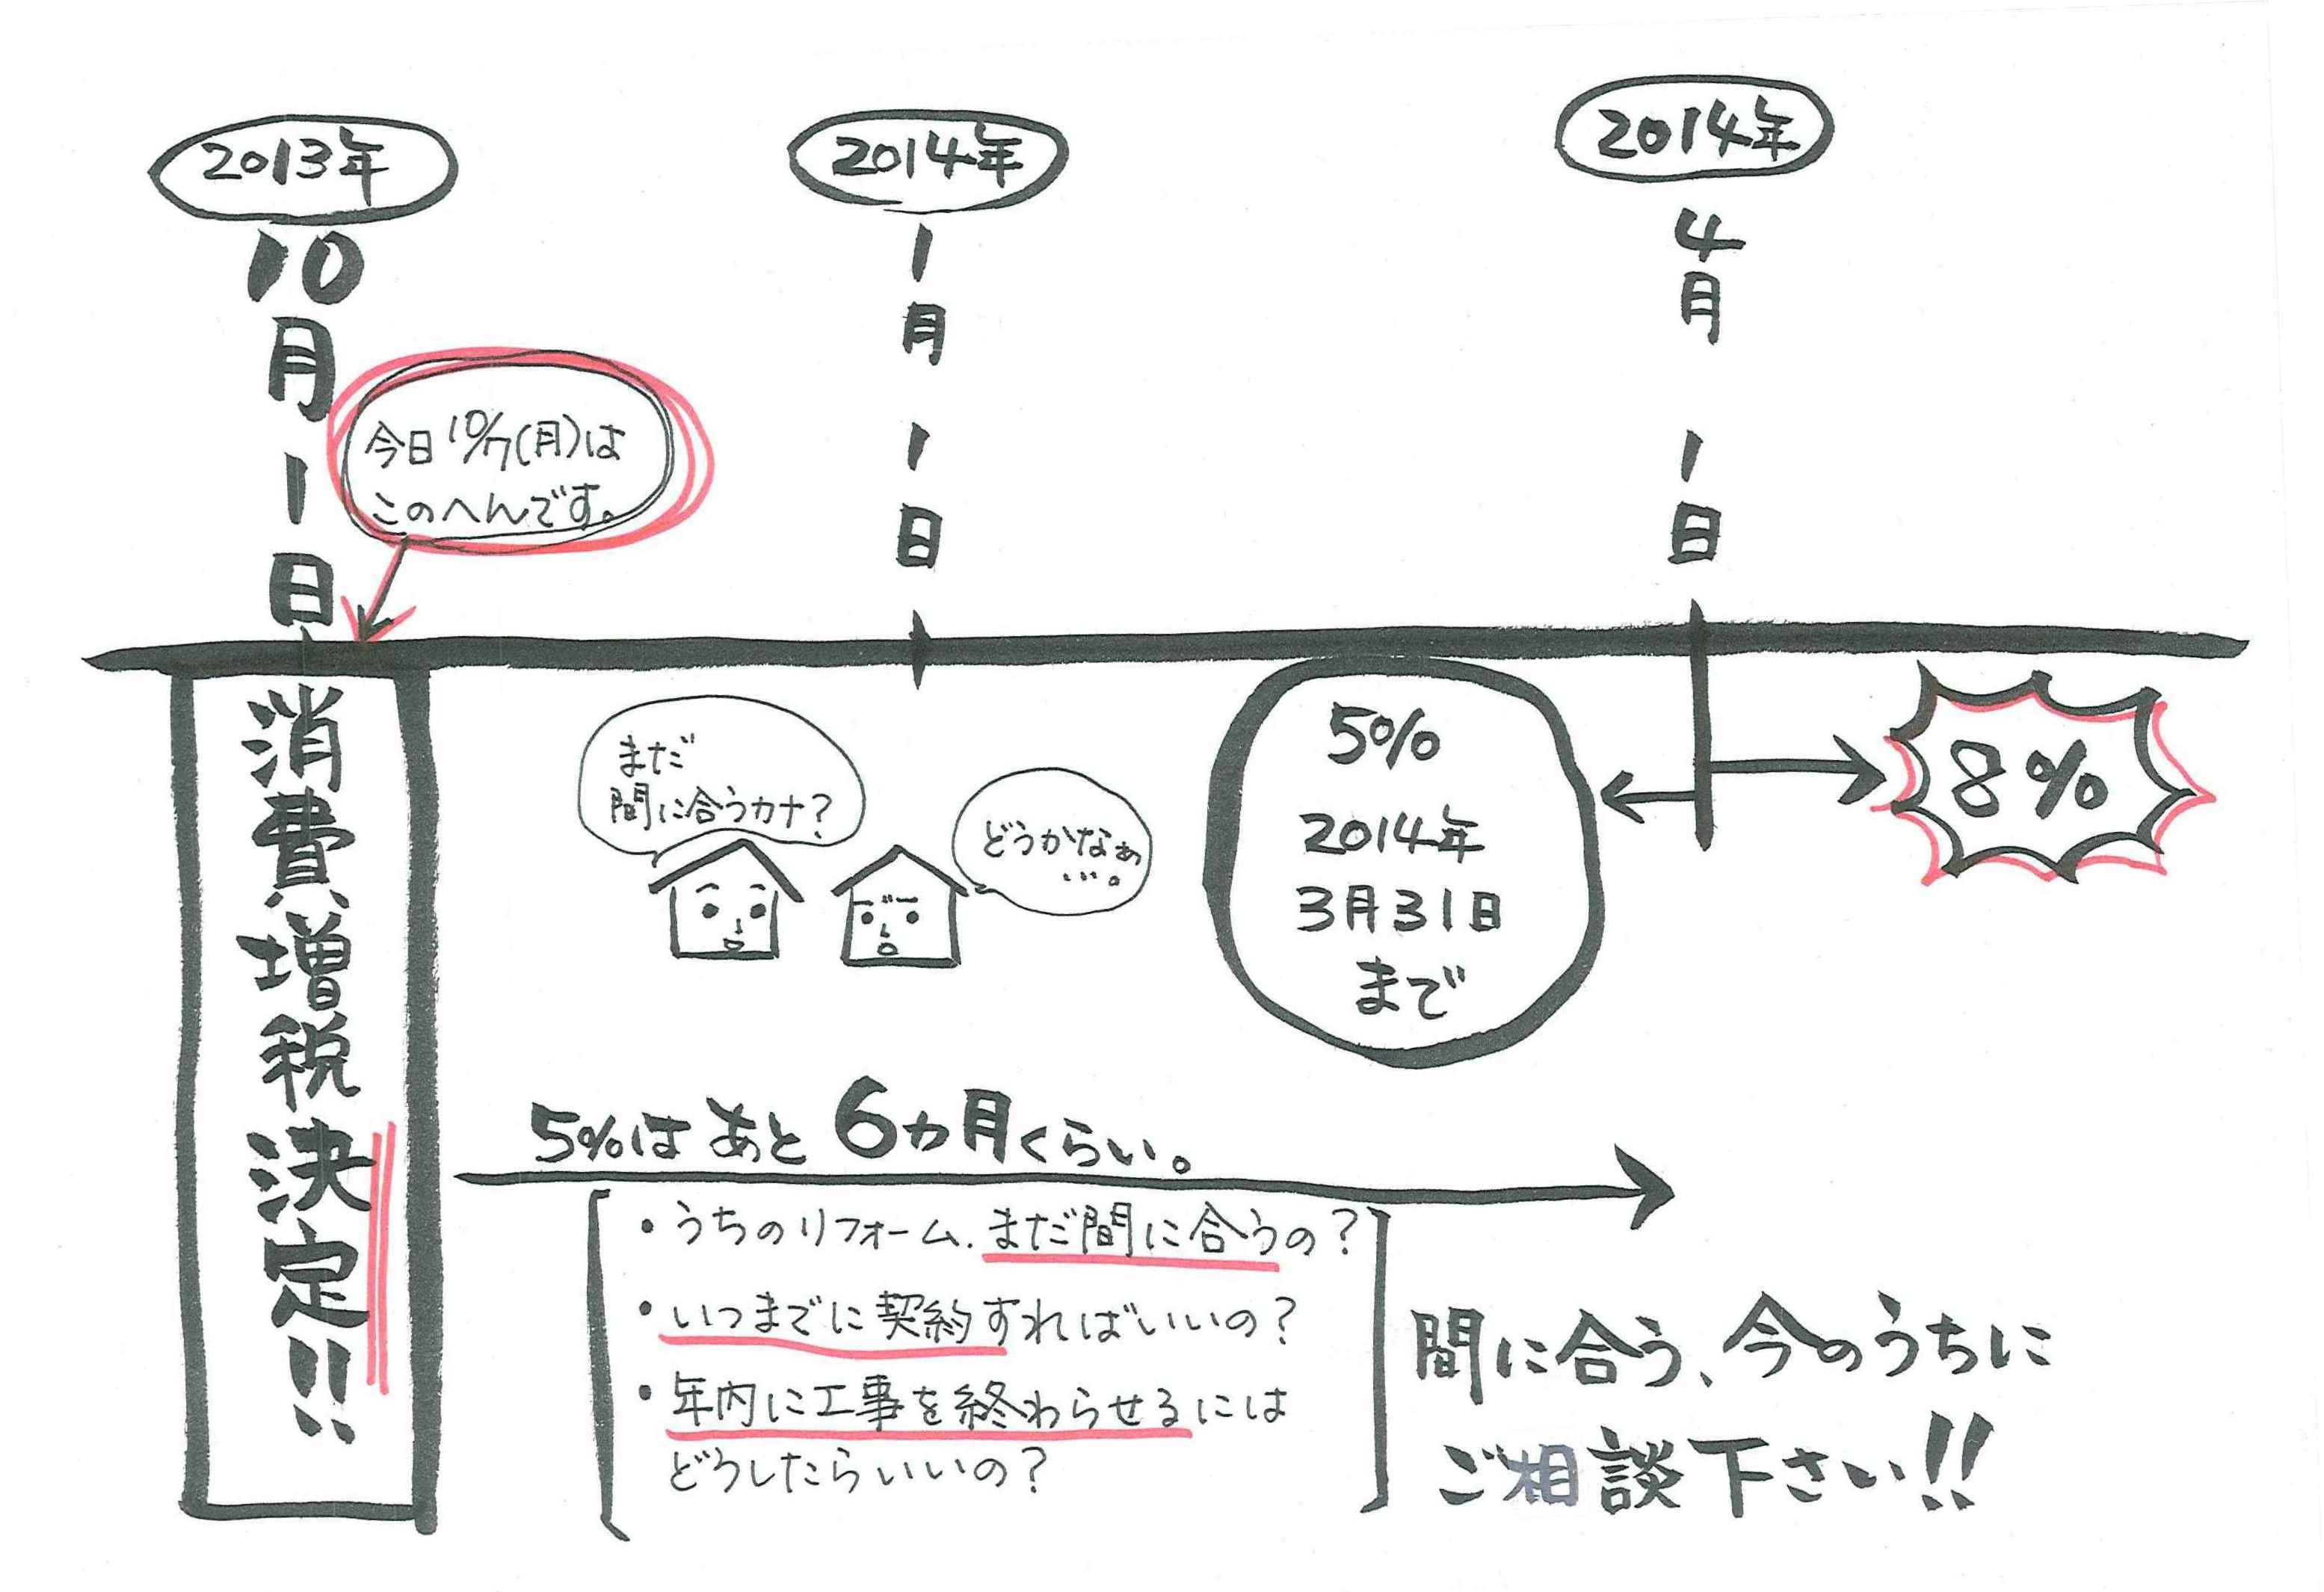 2013年
10月1日
2014年
1月1日
2014年
4月1日
今日10/7(月)は
このへんです。
消費増税決定!!
まだ
間に合うカナ?
どうかなぁ
…。
5%
2014年
3月31日
まで
8%
5%はあと6カ月くらい。
・うちのリフォーム.まだ間に合うの?
・いつまでに契約すればいいの?
・年内に工事を終わらせるには
どうしたらいいの?
間に合う、今のうちに
ご相談下さい!!